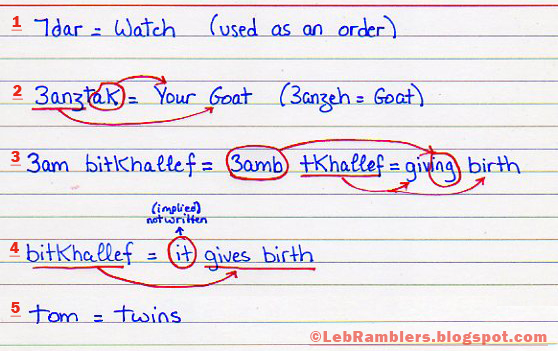 1 7dar = Watch (used as an order)
2 3anztak = Your Goat (3anzeh = Goat)
3 3am bitKhallef = 3amb tKhallef = giving birth
(implied)
not written
4 bitKhallef = it gives birth
5 tom = twins
©LebRamblers.blogspot.com